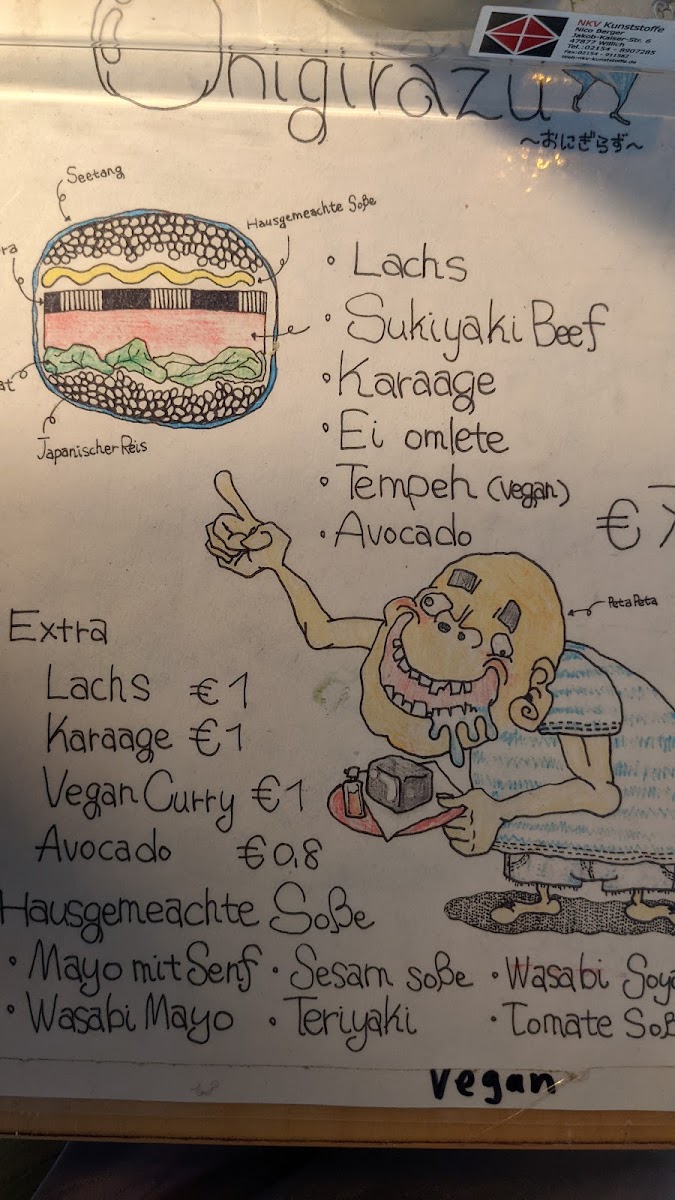 NKV Kunststoffe
Nico Berger
Jakob-Kaiser-Str. 6
47877 Willich
Tel.:02154 - 8907285
Fax:02154 - 911582
Web:nkv-kunststoffe.de
Onigirazu
~おにぎらず~
Seetang
Hausgemeachte Soße
ra
at
Japanischer Reis
• Lachs
• Sukiyaki Beef
• Karaage
• Ei omlete
• Tempeh (vegan)
• Avocado
€7
PetaPeta
Extra
Lachs €1
Karaage €1
Vegan Curry €1
Avocado €0,8
Hausgemeachte Soße
• Mayo mit Senf • Sesam soße • Wasabi Soya
• Wasabi Mayo • Teriyaki • Tomate Soß
vegan